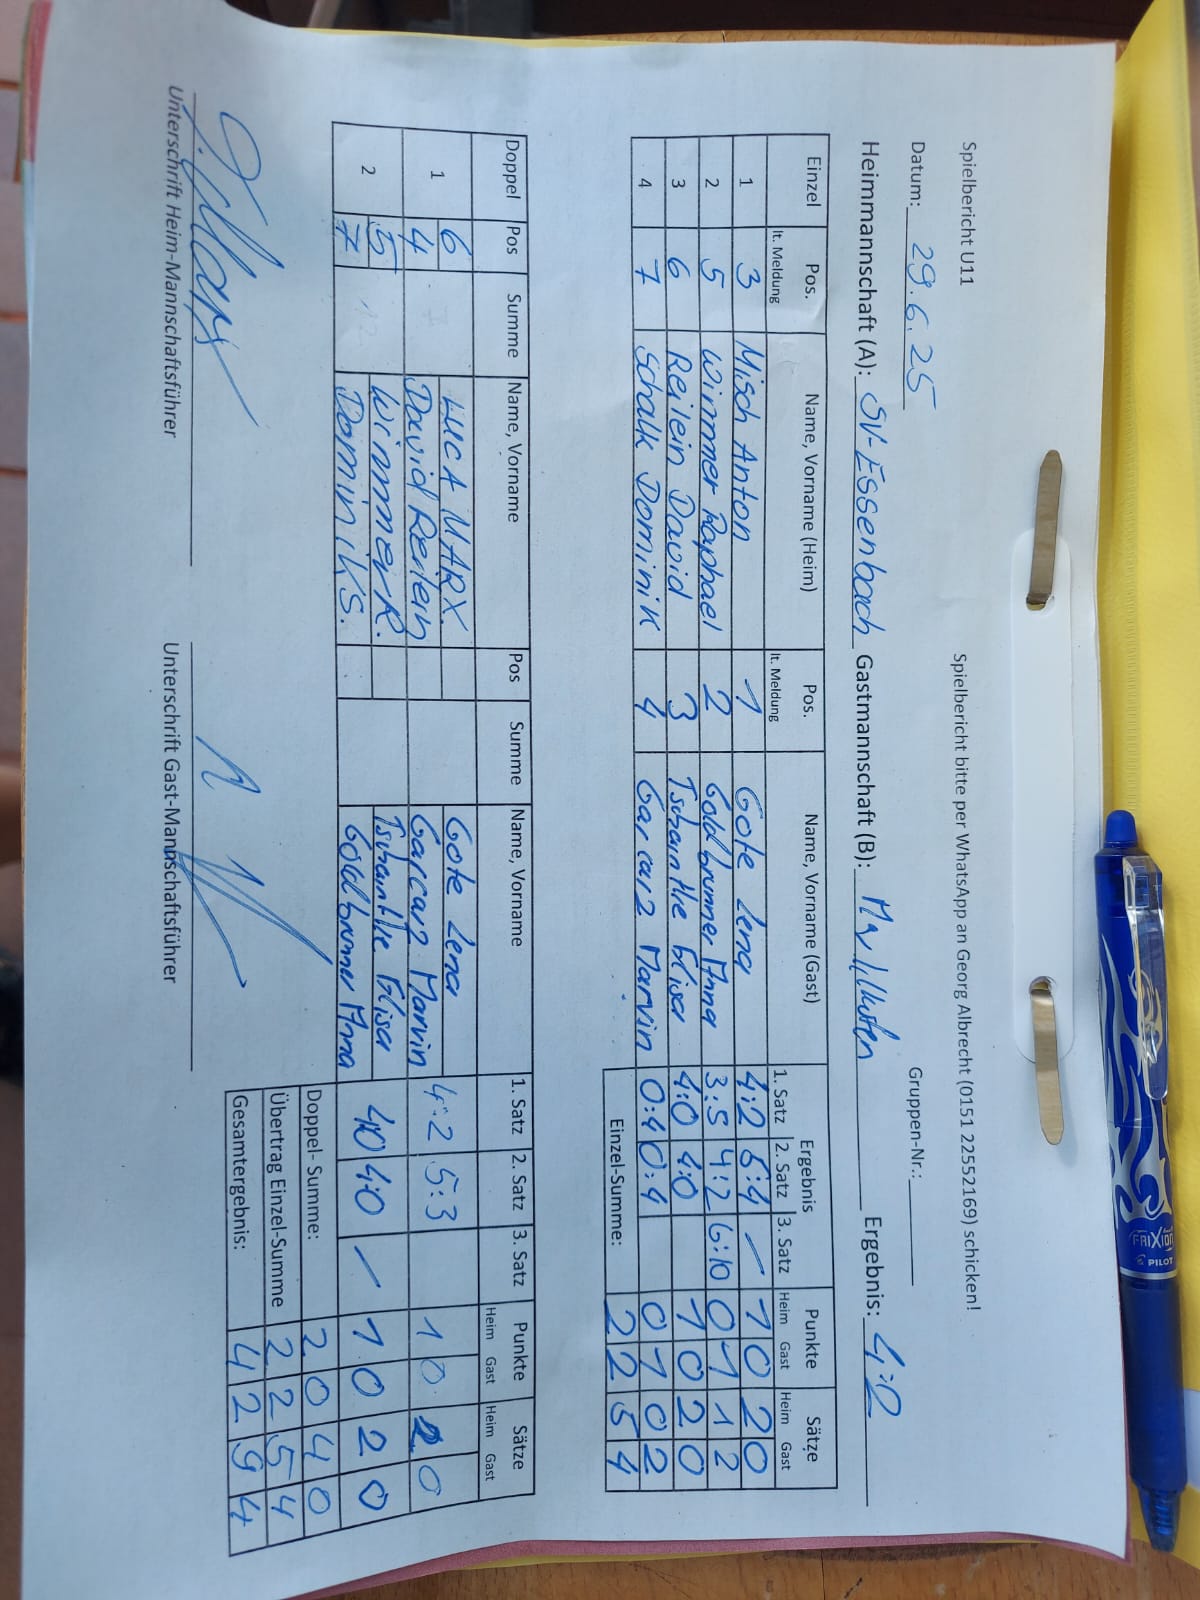 Spielbericht U11 Spielbericht bitte per WhatsApp an Georg Albrecht (0151 22552169) schicken!
Datum: 29.6.25 Gruppen-Nr.:
Heimmannschaft (A): SV-Essenbach Gastmannschaft (B): Ergebnis: 4:2
Einzel Pos. lt. Meldung Name, Vorname (Heim) Pos. lt. Meldung Name, Vorname (Gast) Ergebnis Punkte Sätze
1. Satz 2. Satz 3. Satz Heim Gast Heim Gast
1 3 Misch Anton 1 Gote Lena 4:2 5:4 / 1 0 2 0
2 5 Wimmer Raphael 2 Goldbrunner Anna 3:5 4:2 6:10 0 1 1 2
3 6 Reilein David 3 Elisa 4:0 4:0 1 0 2 0
4 7 Schalk Dominik 4 Marvin 0:4 0:4 0 1 0 2
Einzel-Summe: 2 2 5 4
Doppel Pos Summe Name, Vorname Pos Summe Name, Vorname 1. Satz 2. Satz 3. Satz Punkte Sätze
Heim Gast Heim Gast
6 LUCA MARX Gote Lena
1 4 David Reilein Marvin 4:2 5:3 1 0 2 0
5 Wimmer R. Elisa
2 7 Dominik S. Goldbrunner Anna 40 4:0 / 1 0 2 0
Doppel- Summe: 2 0 4 0
Übertrag Einzel-Summe 2 2 5 4
Gesamtergebnis: 4 2 9 4
Unterschrift Heim-Mannschaftsführer Unterschrift Gast-Mannschaftsführer
FRIXION
PILOT